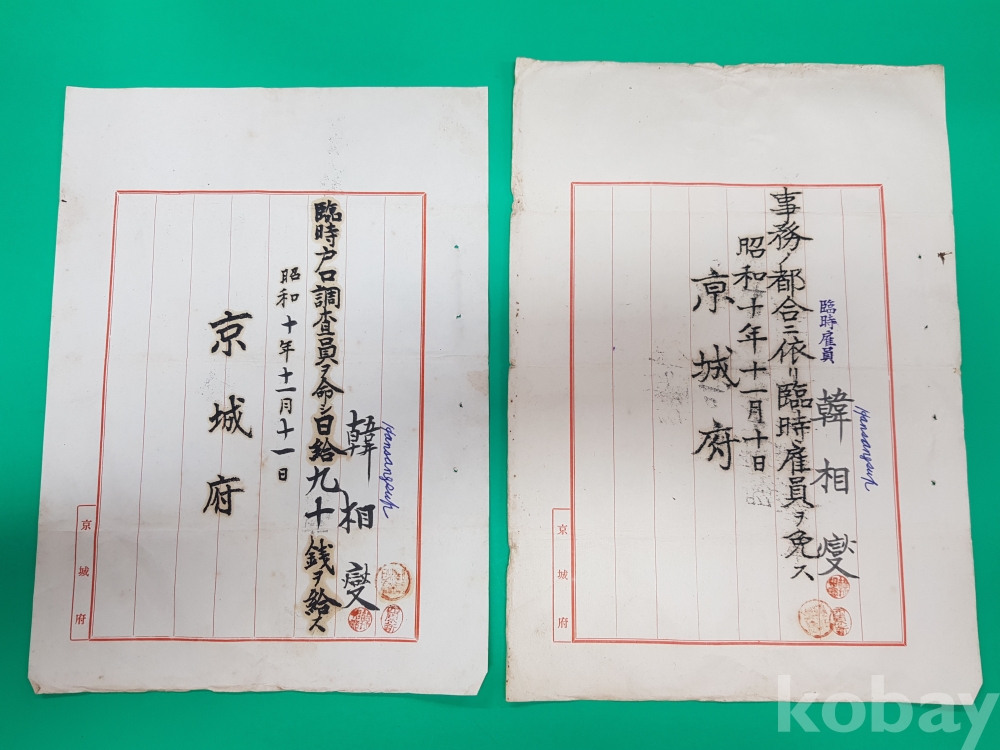 韓相燮
Hansangsuh
臨時戸口調査員ヲ命シ日給九十銭ヲ給ス
昭和十年十一月十一日
京城府
京城府
臨時雇員
韓相燮
Hansangsuh
事務ノ都合ニ依リ臨時雇員ヲ免ス
昭和十年十一月十日
京城府
京城府
kobay